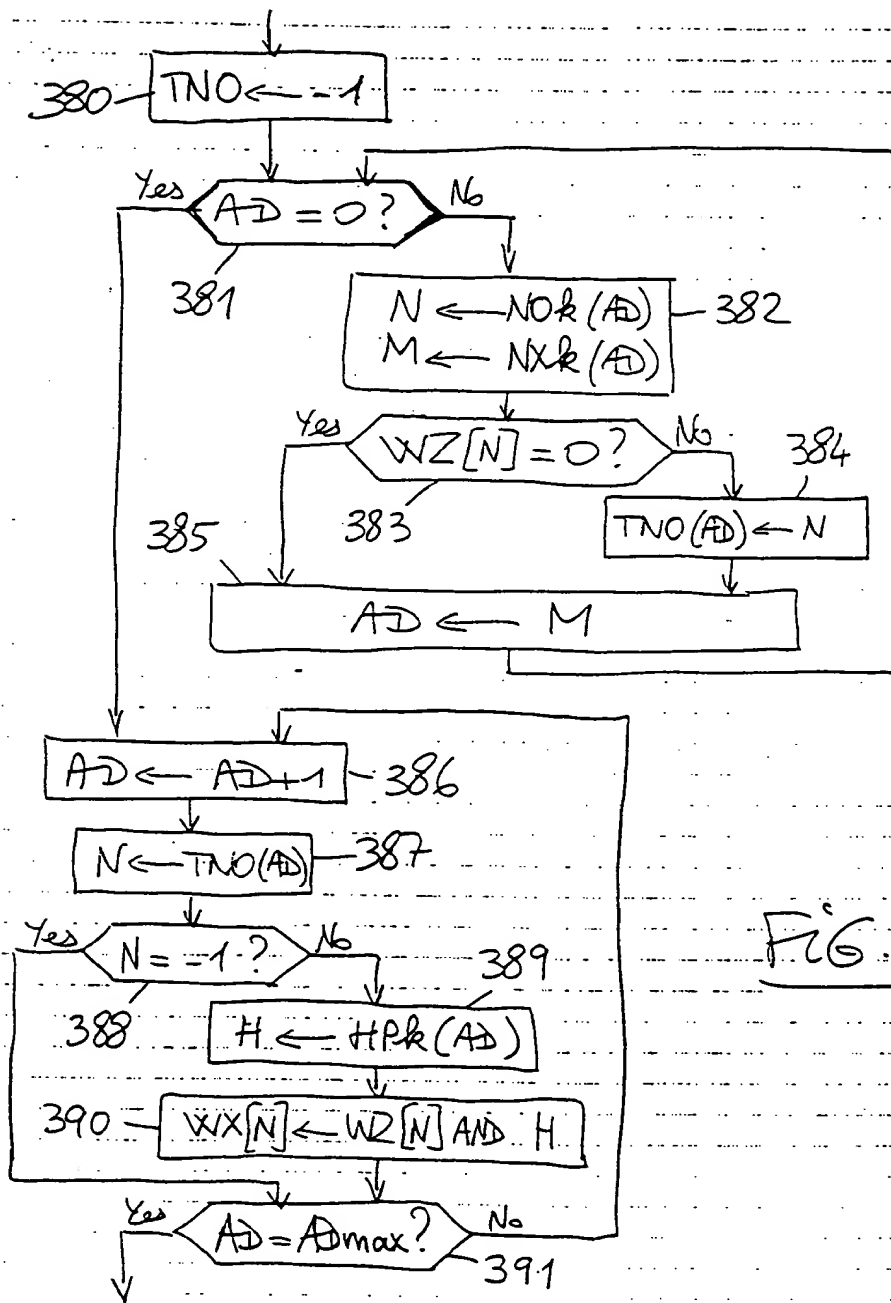 380 TNO ← -1
Yes AD = 0? No
381
N ← NOk (AD) 382
M ← NXk (AD)
Yes WZ[N] = 0? No 384
383
TNO(AD) ← N
385
AD ← M
AD ← AD+1 386
N ← TNO(AD) 387
Yes N = -1? No 389
388
H ← HPk (AD)
FiG.
390 WX[N] ← WZ[N] AND H
Yes AD = ADmax? No
391